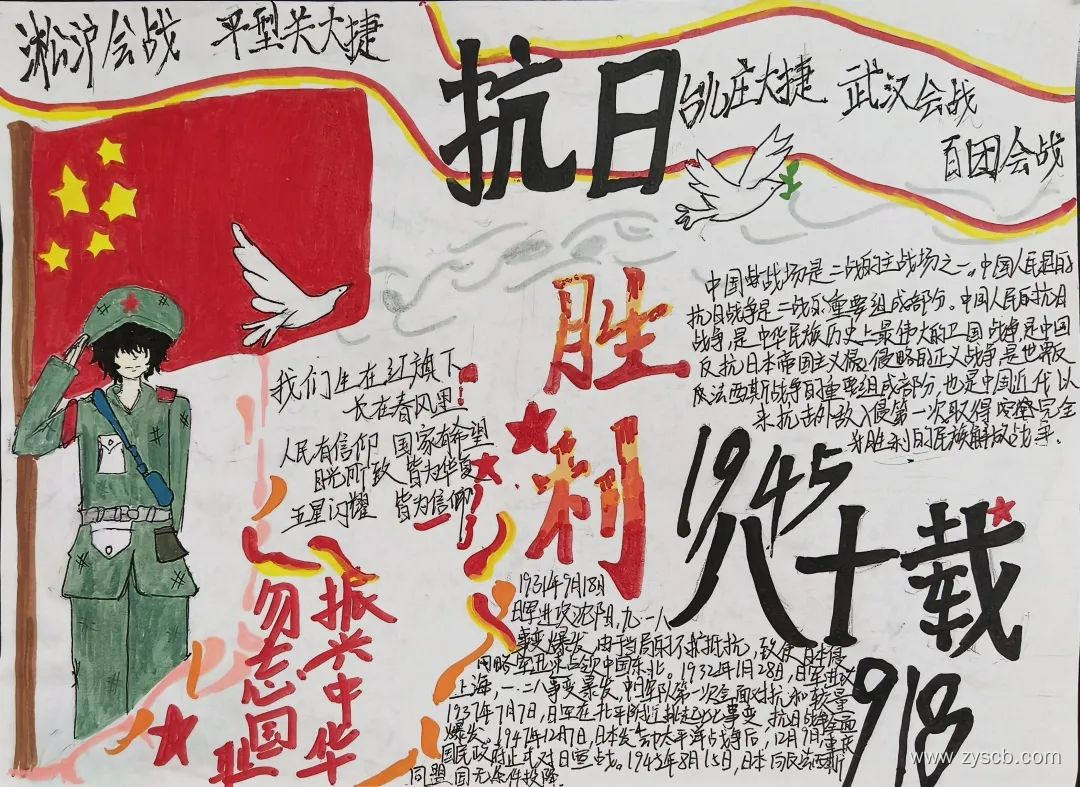 淞沪会战 平型关大捷
抗日
台儿庄大捷 武汉会战
百团会战
胜利
中国战场是二战的主战场之一。中国人民的
抗日战争是二战的重要组成部分。中国人民的抗日
战争,是中华民族历史上最伟大的卫国战争,是中国
反抗日本帝国主义侵略的正义战争,是世界反
法西斯战争的重要组成部分,也是中国近代以
来抗击外敌入侵第一次取得完全
胜利的民族解放战争。
我们生在红旗下
长在春风里
人民有信仰 国家有希望
目光所致 皆为华夏
五星闪耀 皆为信仰
1945
八十载
918
振兴中华
勿忘国耻
1931年9月18日
日军进攻沈阳,九一八
事变爆发,由于当局的不抵抗,致使
占领中国东北。1932年1月28日,日军进攻
上海,一·二八事变暴发,中日军队第一次全面对抗和较量
1937年7月7日,日军在北平附近挑起七七事变 抗日战争全面
爆发。1941年12月7日,日本发动太平洋战争后,12月9日,
国民政府正式对日宣战。1945年8月15日,日本向反法西斯
同盟国无条件投降。
www.zyscb.com